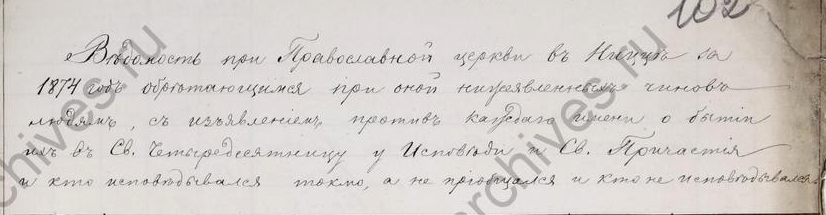 102
Вѣдомость при Православной церкви въ Ниццѣ за
1874 годъ обрѣтающимся при оной нижеявленныхъ чиновъ
людямъ, съ изъявленіемъ противъ каждаго имени о бытіи
ихъ въ Св. Четыредесятницу у Исповѣди и Св. Причастія
и кто исповѣдывался токмо, а не пріобщался и кто не исповѣдывался.
archives.ru
archives.ru